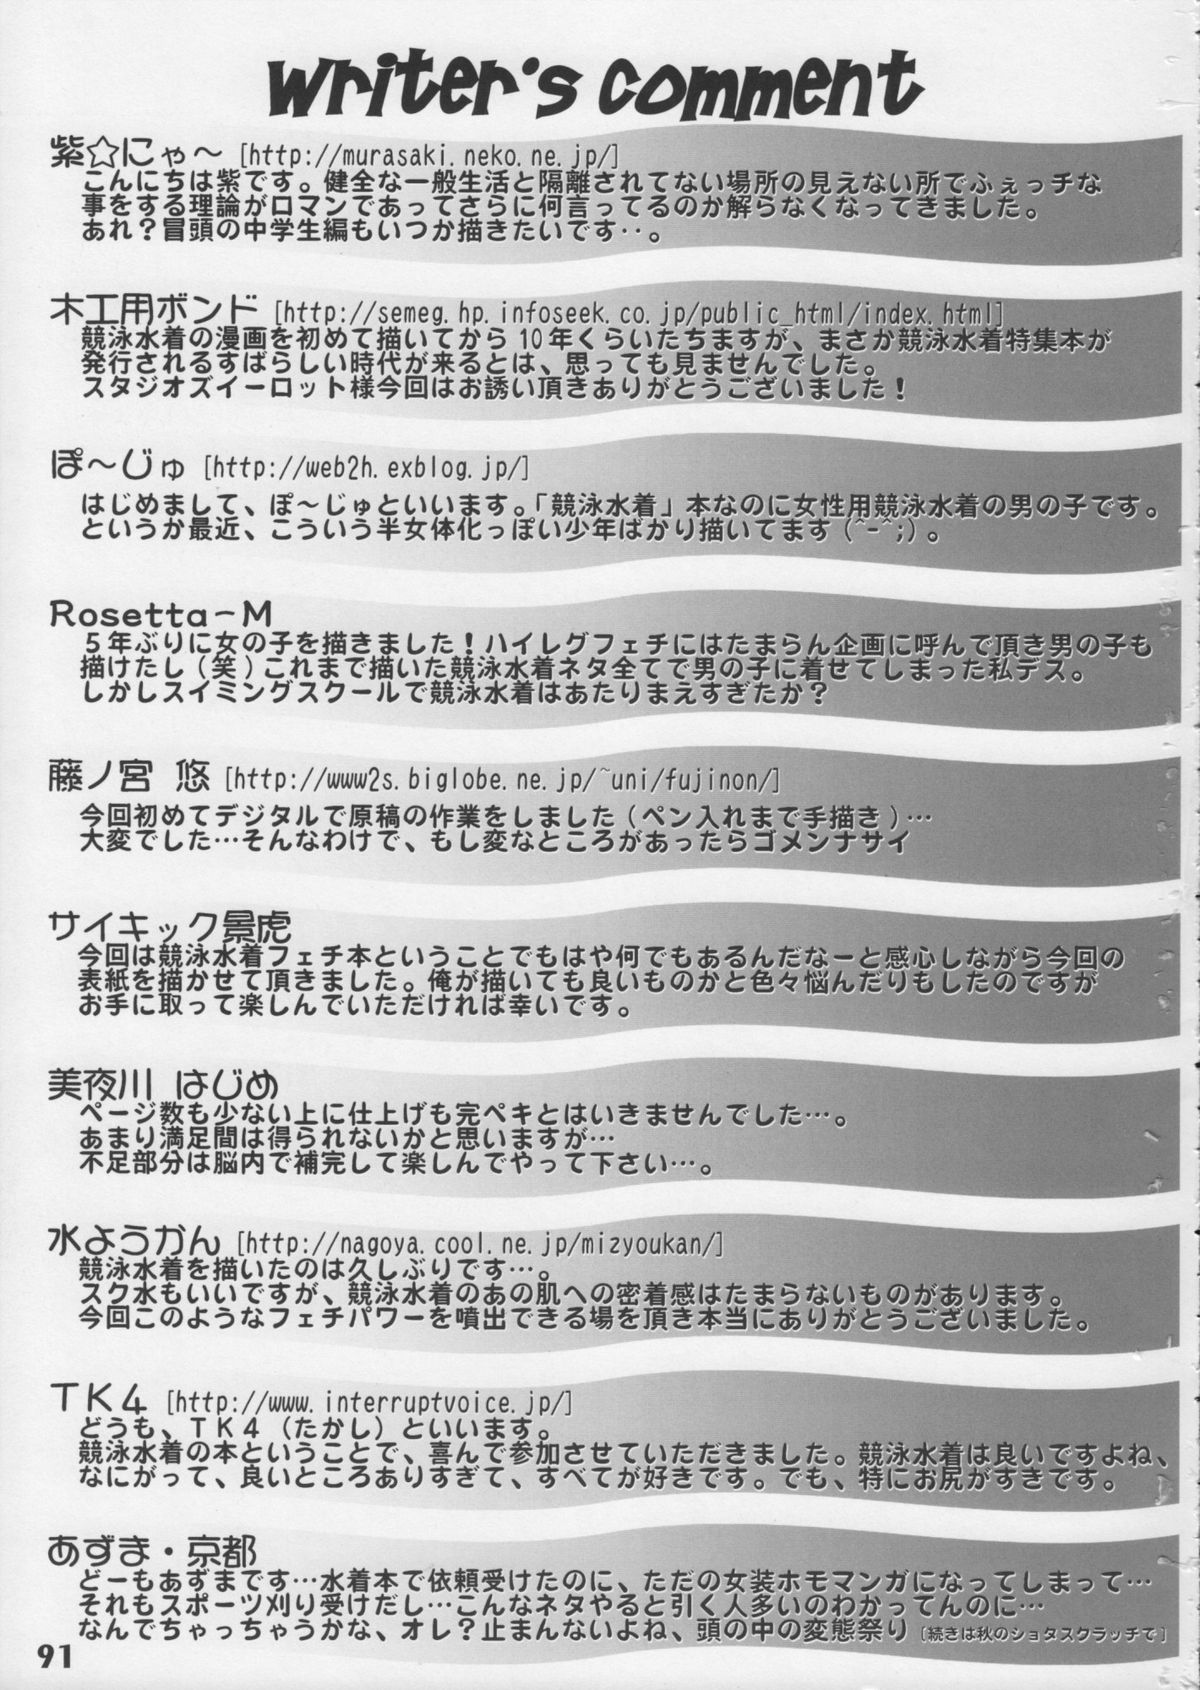 writer's comment
紫☆にゃ～ [http://murasaki.neko.ne.jp/]
こんにちは紫です。健全な一般生活と隔離されてない場所の見えない所でふぇっチな
事をする理論がロマンであってさらに何言ってるのか解らなくなってきました。
あれ？冒頭の中学生編もいつか描きたいです‥。
木工用ボンド [http://semeg.hp.infoseek.co.jp/public_html/index.html]
競泳水着の漫画を初めて描いてから10年くらいたちますが、まさか競泳水着特集本が
発行されるすばらしい時代が来るとは、思っても見ませんでした。
スタジオズイーロット様今回はお誘い頂きありがとうございました！
ぽ～じゅ [http://web2h.exblog.jp/]
はじめまして、ぽ～じゅといいます。「競泳水着」本なのに女性用競泳水着の男の子です。
というか最近、こういう半女体化っぽい少年ばかり描いてます(^-^;)。
Rosetta－M
５年ぶりに女の子を描きました！ハイレグフェチにはたまらん企画に呼んで頂き男の子も
描けたし(笑)これまで描いた競泳水着ネタ全てで男の子に着せてしまった私デス。
しかしスイミングスクールで競泳水着はあたりまえすぎたか？
藤ノ宮 悠 [http://www2s.biglobe.ne.jp/~uni/fujinon/]
今回初めてデジタルで原稿の作業をしました(ペン入れまで手描き)…
大変でした…そんなわけで、もし変なところがあったらゴメンナサイ
サイキック景虎
今回は競泳水着フェチ本ということでもはや何でもあるんだなーと感心しながら今回の
表紙を描かせて頂きました。俺が描いても良いものかと色々悩んだりもしたのですが
お手に取って楽しんでいただければ幸いです。
美夜川 はじめ
ページ数も少ない上に仕上げも完ペキとはいきませんでした…。
あまり満足間は得られないかと思いますが…
不足部分は脳内で補完して楽しんでやって下さい…。
水ようかん [http://nagoya.cool.ne.jp/mizyoukan/]
競泳水着を描いたのは久しぶりです…。
スク水もいいですが、競泳水着のあの肌への密着感はたまらないものがあります。
今回このようなフェチパワーを噴出できる場を頂き本当にありがとうございました。
ＴＫ４ [http://www.interruptvoice.jp/]
どうも、ＴＫ４（たかし）といいます。
競泳水着の本ということで、喜んで参加させていただきました。競泳水着は良いですよね、
なにがって、良いところありすぎて、すべてが好きです。でも、特にお尻がすきです。
あずま・京都
どーもあずまです…水着本で依頼受けたのに、ただの女装ホモマンガになってしまって…
それもスポーツ刈り受けだし…こんなネタやると引く人多いのわかってんのに…
なんでちゃっちゃうかな、オレ？止まんないよね、頭の中の変態祭り [続きは秋のショタスクラッチで]
91